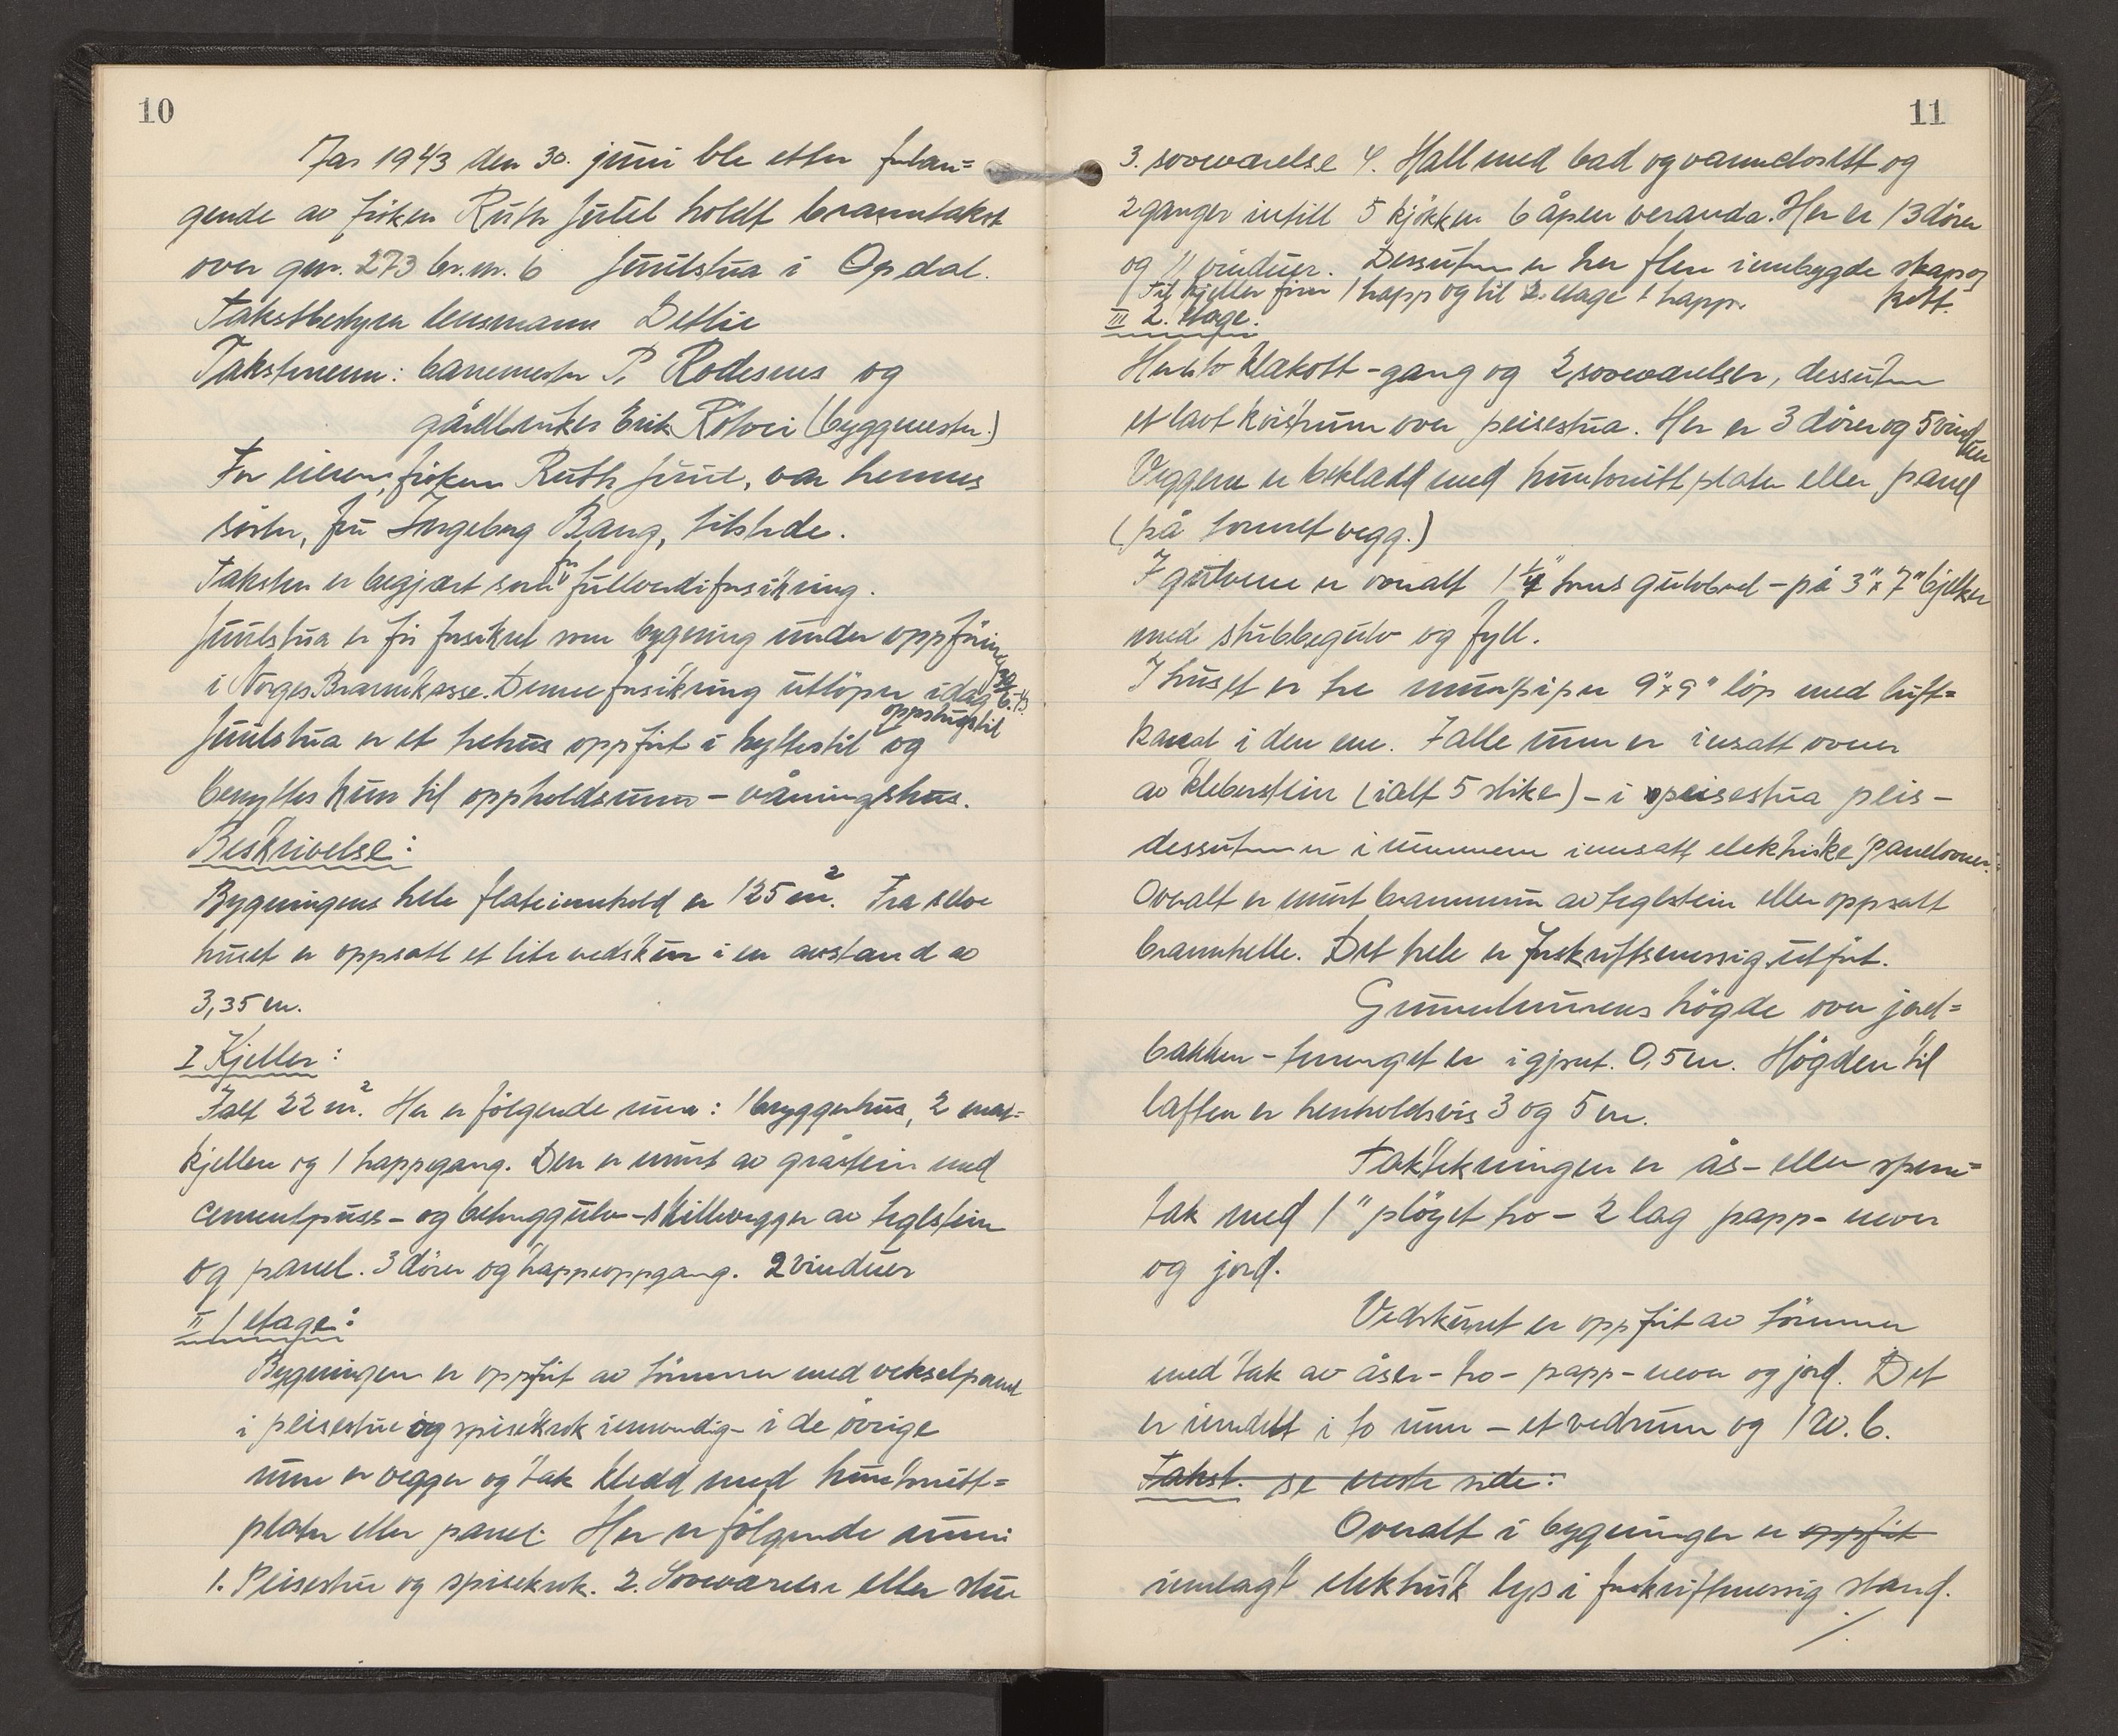 10
År 1943 den 30. juni ble etter forlan=
gende av fröken Ruth Juul holdt branntakst
over gnr. 273 br.nr. 6 Juulstua i Opdal.
Takstbestyrer lensmann Detlie
Takstmenn: banemester P. Rodesens og
gårdbruker Erik (byggmester.)
For eieren, fröken Ruth Juul, var hennes
söster, fru Ingeborg Bang, tilstede.
Taksten er begjært som for fullverdiforsikring.
Juulstua er för forsikret som bygning under oppföring
i Norges Brannkasse. Denne forsikring utlöper idag
Juulstua er et trehus oppfört i hyttestil oppstugstil og
benyttes kun til oppholdsrum - våningshus.
Beskrivelse:
Bygningens hele flateinnhold er 125 m². Fra selve
huset er oppsatt et lite vedskur i en avstand av
3,35 m.
I Kjeller:
Ialt 22 m². Her er fölgende rum: 1 bryggerhus, 2 mat-
kjellere og 1 trappegang. Den er murt av gråstein med
cementpuss - og betonggulv - skillevegger av teglstein
og panel. 3 dörer og trappeoppgang. 2 vinduer
II 1 etage:
Bygningen er oppfört av tömmer med vekselpanel
i peisestue og spisekrok innvendig - i de övrige
rum er vegger og tak kledd med huntonitt=
plater eller panel. Her er fölgende rum:
1. Peisestue og spisekrok. 2. Soveværelse eller stue
11
3. soveværelse 4. Hall med bad og vannclosett og
2 ganger intill 5 kjökken 6 åpen veranda. Her er 13 dörer
og 11 vinduer. Dessuten er her flere innbygde skap og
kott.
Til kjeller förer 1 trapp og til 2. etage 1 trapp.
III 2. etage.
Her er to klækott - gang og 2 soveværelser, dessuten
et lavt kvistrum over peisestua. Her er 3 dörer og 5 vinduer
Veggene er beklædd med huntonitt plater eller panel
(på tömret vegg.)
I gulvene er overalt 1 1/4" toms gulvbord - på 3" x 7" bjelker
med stubbegulv og fyll.
I huset er tre murpiper 9" x 9" löp med luft=
kanal i den ene. I alle rum er innsatt ovner
av kleberstein (ialt 5 slike) - i peisestua peis -
dessuten er i rummene innsatt elektriske panelovner.
Overalt er murt brannmur av teglstein eller oppsatt
brannhelle. Det hele er forskriftsmessig utfört.
Grunnmurens högde over jord=
bakken - terrenget er i gj.snt. 0,5 m. Högden til
loftet er henholdsvis 3 og 5 m.
Taktekningen er ås- eller sperre=
tak med 1" plöyet bo - 2 lag papp - never
og jord.
Vedskuret er oppfört av tömmer
med tak av åser - bo - papp - never og jord. Det
er inndelt i to rum - et vedrum og 1 W.C.
Takst. se neste side:
Overalt i bygningen er oppfört
innlagt elektrisk lys i forskriftmessig stand.